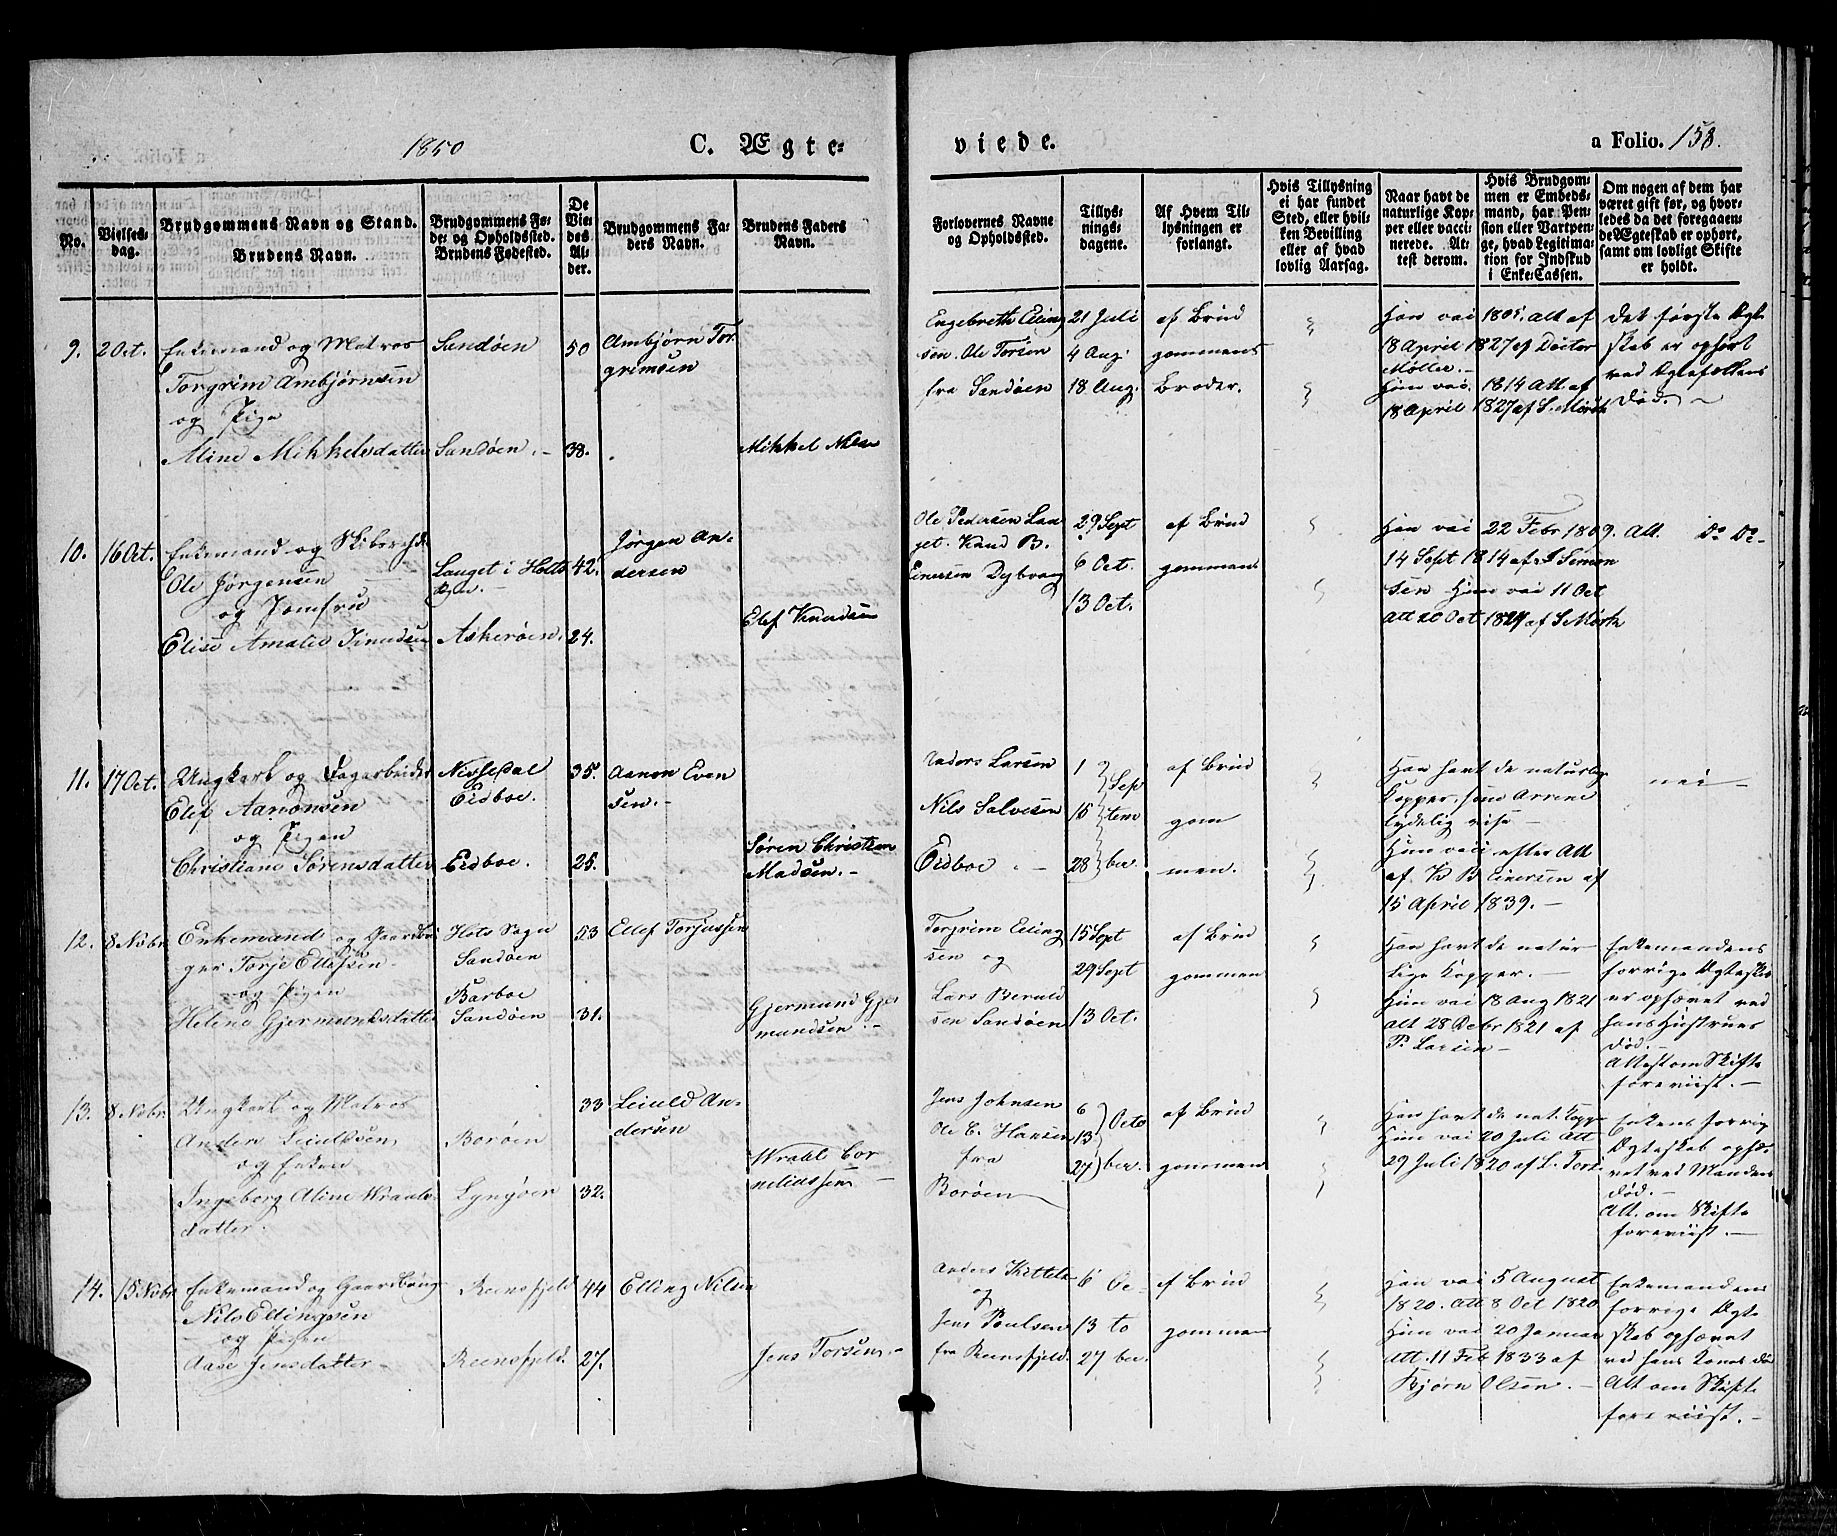 1850
C. Ægte-
viede.
a Folio. 158.
No.
Vielses-
dag.
Brudgommens Navn og Stand.
Brudens Navn.
Brudgommens Fø-
de- og Opholdssted.
Brudens Fødested.
De
Vie-
des Al-
der.
Brudgommens Fa-
ders Navn.
Brudens Faders
Navn.
Forlovernes Navne
og Opholdssted.
Tillys-
nings-
dagene.
Af Hvem Til-
lysningen er
forlangt.
Hvis Tillysning
ei har fundet
Sted, eller hvil-
ken Bevilling
eller af hvad
lovlig Aarsag.
Naar havt de
naturlige Kop-
per eller vacci-
nerede. At-
test derom.
Hvis Brudgom-
men er Embeds-
mand, har Pen-
sion eller Vartpen-
ge, hvad Legitima-
tion for Indskud
i Enke-Cassen.
Om nogen af dem har
været gift før, og hvor-
ledes da det foregaaen-
de Ægteskab er ophørt,
samt om lovligt Skifte
er holdt.
9. 2 Oct. Enkemand og Matros
Torgrim Ambjørnsen
og Pige
Aline Mikkelsdatter
Sandøen
Sandøen.
50
38.
Ambjørn Tor-
grimsen
Mikkel Nilsen
Engebreth Elling
sen. Ole Torsen
fra Sandøen
21 Juli
4 Aug.
18 Aug.
af Brud
gommens
Broder.
Han vac 1805. Att af
18 April 1827 af Doctor
Møller.
Hun vac. 1814 Att af
18 April 1827 af S. Mörch
Det første Ægte
skab er ophørt
ved Ægtefællens
Død.
10. 16 Oct. Enkemand og
Ole Jørgensen
og Jomfru
Elise Amalie Knudsen
Lauget i Holts
Sogn.
Askerøen.
42.
24.
Jørgen An-
dersen
Elef Knudsen
Ole Pedersen Lau
get. Knud B.
Einersen Dybvaag
29 Sept
6 Oct.
13 Oct.
af Brud
gommens
Han vac 22 Febr 1809. Att.
14 Sept 1814 af Simon
sen Hun vac 11 Oct
Att 20 Oct 1827 af S. Mörch
Do Do
11. 17 Oct. Ungkarl og Dagarbeider
Elef Aanonsen
og Pigen
Christiane Sørensdatter
Eidboe.
Eidboe.
35.
25.
Aanon Even
sen.
Søren Christian
Madsen.
Anders Larsen
Nils Salvesen
Eidboe
1
15
28
Sep
tem
ber.
af Brud
gom
men.
Han havt de naturlige
Kopper, som Arrene
tydelig vise
Hun vac efter Att
af K B Einersen af
15 April 1839.
nei
12. 8 Nobr. Enkemand og Gaardbru
ger Torje Ellefsen
og Pigen
Helene Gjermundsdatter
Holts Sogn
Sandøen
Barboe
Sandøen
53
31.
Ellef Torjussen
Gjermund Gjer
mundsen.
Torgrim Elling
sen og
Lars Beruld
sen Sandøen
15 Sept
29 Sept
13 Oct.
af Brud
gommen
Han havt de natur
lige Kopper.
Hun vac 18 Aug 1821
Att 28 Debr 1821 af
P. Larsen
Enkemandens
forrige Ægteskab
er ophævet ved
hans Hustrues
død.
Attest om Skifte
foreviist.
13. 8 Nobr. Ungkarl og Matros
Anders Leiulfsen
og Enken
Ingeborg Aline Wraals-
datter.
Borøen
Lyngøer
33
32.
Leiuld An-
dersen
Wraal Cor
neliussen
Jens Johnsen
Ole C. Hansen
fra
Borøen
6
13
27
Octo
ber.
af Brud
gommen
Han havt de nat. Kopp
Hun vac 20 Juli Att
29 Juli 1820 af
Enkens forrige
Ægteskab ophæ-
vet ved Mandens
død.
Att. om Skifte
foreviist.
14. 15 Nobr. Enkemand og Gaardbrug
Nils Ellingsen
og Pigen
Aase Jensdatter
Reensfjeld
Reensfjeld.
44
27.
Elling Nilsen
Jens Torsen.
Anders Kittels
og
Jens Poulsen
fra Reensfjeld.
6 Oc-
13 to
27 ber.
af Brud
gommen
Han vac 5 August
1820. Att 8 Oct 1820
Hun vac 20 Januar
Att. 11 Feb 1833 af
Bjørn Olsen.
Enkemandens
forrige Ægte
skab ophævet
ved hans Kones død
Att om Skifte
foreviist.